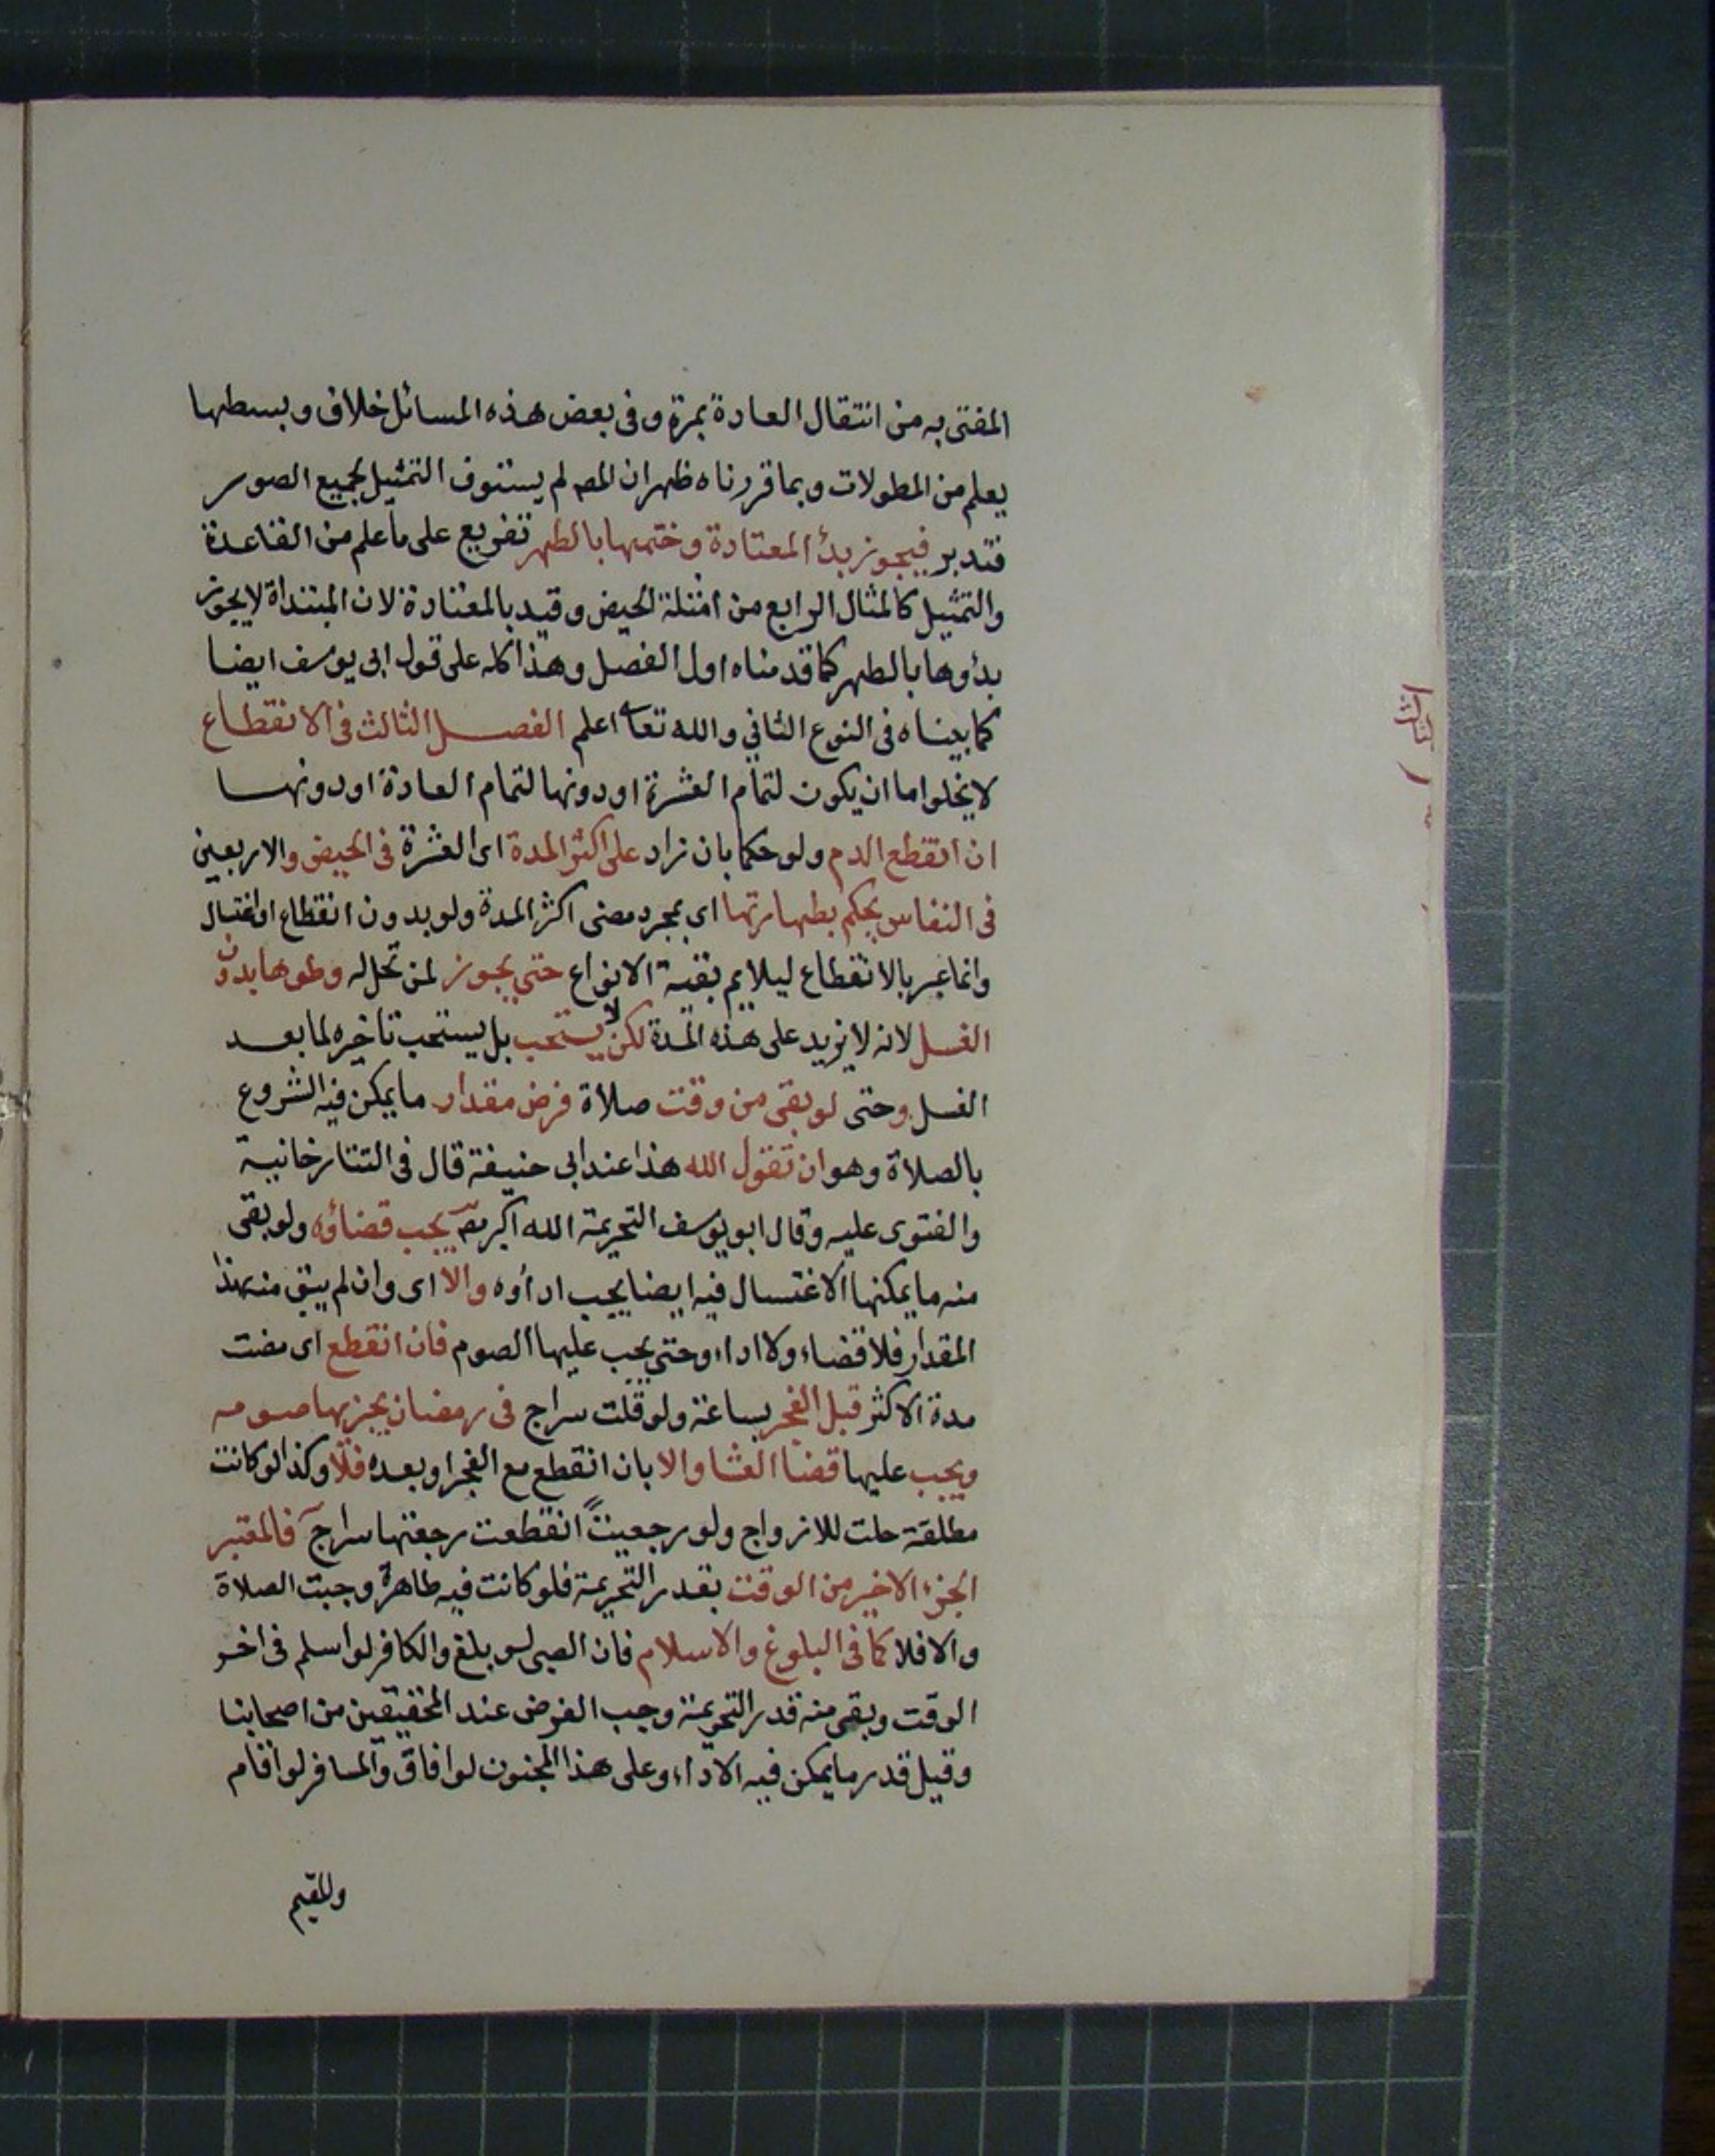 المفتى به من انتقال العادة بمرة وفى بعض هذه المسائل خلاف وبسطها
يعلم من المطولات وبما قررناه ظهر ان المص لم يستوف التمثيل لجميع الصور
فتدبر فيجوز بدأ المعتادة وختمها بالطهر تفريع على ما علم من القاعدة
والتمثيل كالمثال الرابع من امثلة الحيض وقيد بالمعتادة لان المبتداة لا يجوز
بدؤها بالطهر كما قدمناه اول الفصل وهذا كله على قول ابى يوسف ايضا
كما بيناه فى النوع الثاني والله تعا اعلم الفصل الثالث فى الانقطاع
لا يخلوا اما ان يكون لتمام العشرة او دونها لتمام العادة او دونها
ان انقطع الدم ولو حكما بان زاد على اكثر المدة اى العشرة فى الحيض والاربعين
فى النفاس يحكم بطهارتها اى بمجرد مضى اكثر المدة ولو بدون انقطاع او اغتسال
وانما عبر بالانقطاع ليلايم بقية الانواع حتى يجوز لمن تحل له وطوها بدون
الغسل لانه لا يزيد على هذه المدة لكن لا يستحب بل يستحب تاخيره لما بعد
الغسل وحتى لو بقى من وقت صلاة فرض مقدار ما يمكن فيه الشروع
بالصلاة وهو ان تقول الله هذا عند ابى حنيفة قال فى التتارخانية
والفتوى عليه وقال ابو يوسف التحريمة الله اكبر يجب قضاؤه ولو بقى
منه ما يمكنها الاغتسال فيه ايضا يجب اداؤه والا اى وان لم يبق منه هذا
المقدار فلا قضاء ولا اداء وحتى يجب عليها الصوم فان انقطع اى مضت
مدة الاكثر قبل الفجر بساعة ولو قلت سراج فى رمضان يجزيها صومه
ويجب عليها قضا العشا والا بان انقطع مع الفجر او بعده فلا وكذا لو كانت
مطلقة حلت للازواج ولو رجعيا انقطعت رجعتها سراج فالمعتبر
الجزء الاخير من الوقت بقدر التحريمة فلو كانت فيه طاهرة وجبت الصلاة
والا فلا كما فى البلوغ والاسلام فان الصبى لو بلغ والكافر لو اسلم فى اخر
الوقت وبقى منه قدر التحريمة وجب الفرض عند المحققين من اصحابنا
وقيل قدر ما يمكن فيه الاداء وعلى هذا المجنون لو افاق والمسافر لو اقام
والمقيم